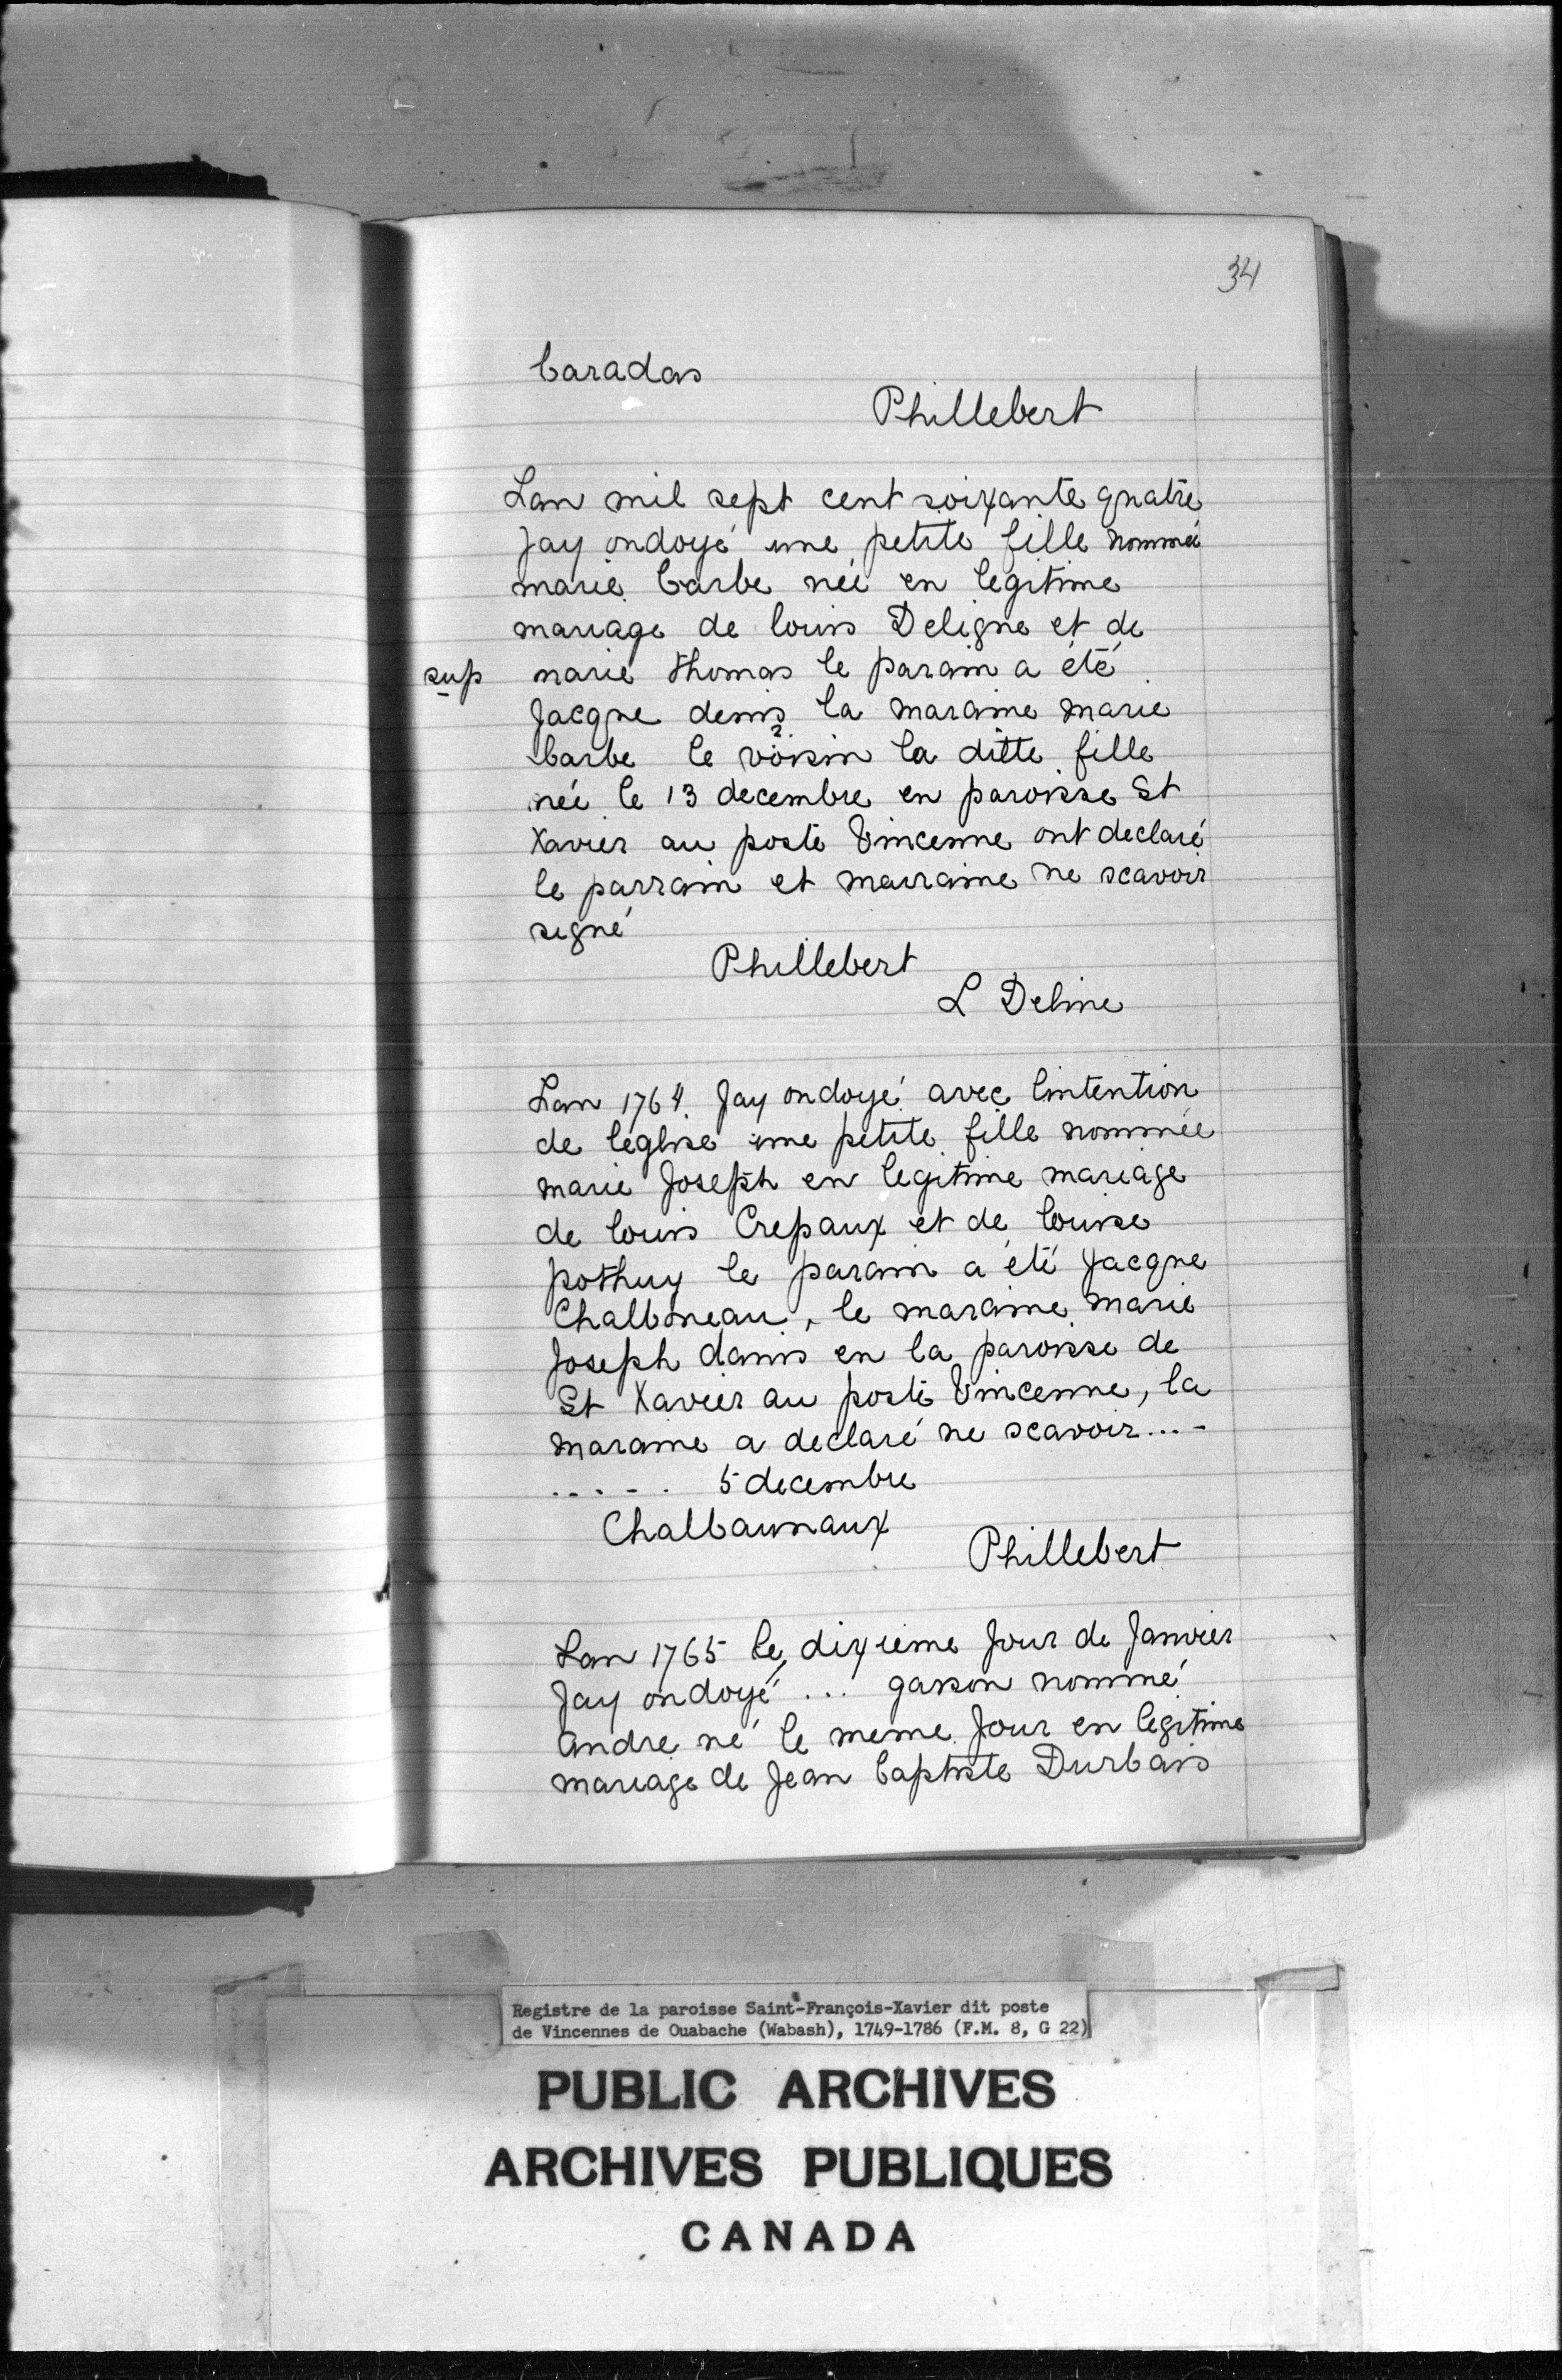 34
baradas
Phillebert
Lan mil sept cent soixante quatre
Jay ondoyé une petite fille nommée
marie barbe née en legitime
mariage de louis Deligne et de
sup marie thomas le parain a été
Jacque denis la maraine marie
barbe le voisin ? la ditte fille
née le 13 decembre en paroisse St
Xavier au poste Vincenne ont declaré
le parrain et marraine ne scavoir
signé
Phillebert
L Deline
Lan 1764 Jay ondoyé avec lintention
de léglise une petite fille nommée
marie Joseph en legitime mariage
de louis Crepaux et de louise
pothuy le parain a été Jacque
Chalboneau, le maraine marie
Joseph danis en la paroisse de
St Xavier au poste Vincenne, la
maraine a declaré ne scavoir....
..... 5 decembre
Chalbaunaux
Phillebert
Lan 1765 le dixieme Jour de Janvier
Jay ondoyé ... garson nommé
andre né le meme Jour en legitime
mariage de Jean baptiste Durbais
Registre de la paroisse Saint-François-Xavier dit poste
de Vincennes de Ouabache (Wabash), 1749-1786 (F.M. 8, G 22)
PUBLIC ARCHIVES
ARCHIVES PUBLIQUES
CANADA